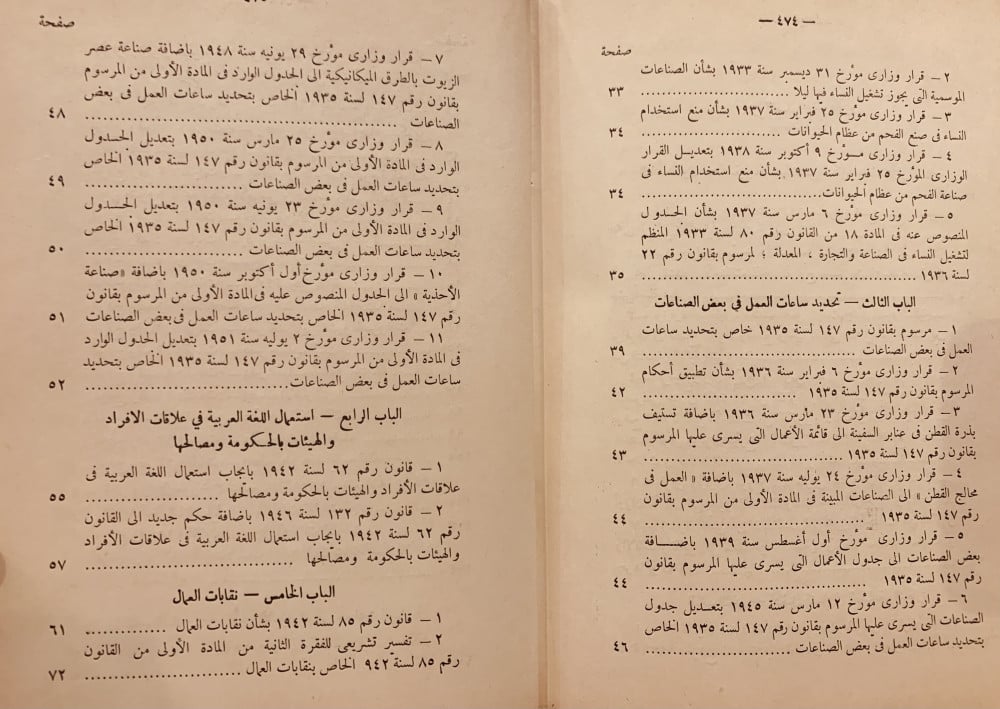 — ٤٧٤ —
صفحة
٢ — قرار وزارى مؤرخ ٣١ ديسمبر سنة ١٩٣٣ بشأن الصناعات
الموسمية التى يجوز تشغيل النساء فيها ليلا .................. ٣٣
٣ — قرار وزارى مؤرخ ٢٥ فبراير سنة ١٩٣٧ بشأن منع استخدام
النساء فى صنع الفحم من عظام الحيوانات .................. ٣٤
٤ — قرار وزارى مؤرخ ٩ أكتوبر سنة ١٩٣٨ بتعديل القرار
الوزارى المؤرخ ٢٥ فبراير سنة ١٩٣٧ بشأن منع استخدام النساء فى
صناعة الفحم من عظام الحيوانات .................. ٣٤
٥ — قرار وزارى مؤرخ ٦ مارس سنة ١٩٣٧ بشأن الجدول
المنصوص عنه فى المادة ١٨ من القانون رقم ٨٠ لسنة ١٩٣٣ المنظم
لتشغيل النساء فى الصناعة والتجارة ، المعدلة ؛ لمرسوم بقانون رقم ٢٢
لسنة ١٩٣٦ .................. ٣٥
الباب الثالث — تحديد ساعات العمل في بعض الصناعات
١ — مرسوم بقانون رقم ١٤٧ لسنة ١٩٣٥ خاص بتحديد ساعات
العمل فى بعض الصناعات .................. ٣٩
٢ — قرار وزارى مؤرخ ٦ فبراير سنة ١٩٣٦ بشأن تطبيق أحكام
المرسوم بقانون رقم ١٤٧ لسنة ١٩٣٥ .................. ٤٢
٣ — قرار وزارى مؤرخ ٢٣ مارس سنة ١٩٣٦ باضافة تستيف
بذرة القطن فى عنابر السفينة الى قائمة الأعمال التى يسرى عليها المرسوم
بقانون رقم ١٤٧ لسنة ١٩٣٥ .................. ٤٣
٤ — قرار وزارى مؤرخ ٢٤ يوليه سنة ١٩٣٧ باضافة « العمل فى
محالج القطن » الى الصناعات المبينة فى المادة الأولى من المرسوم بقانون
رقم ١٤٧ لسنة ١٩٣٥ .................. ٤٤
٥ — قرار وزارى مؤرخ أول أغسطس سنة ١٩٣٩ باضافة
بعض الصناعات الى جدول الأعمال التى يسرى عليها المرسوم بقانون
رقم ١٤٧ لسنة ١٩٣٥ .................. ٤٤
٦ — قرار وزارى مؤرخ ١٢ مارس سنة ١٩٤٥ بتعديل جدول
الصناعات التى يسرى عليها المرسوم بقانون رقم ١٤٧ لسنة ١٩٣٥ الخاص
بتحديد ساعات العمل فى بعض الصناعات .................. ٤٦
صفحة
٧ — قرار وزارى مؤرخ ٢٩ يونيه سنة ١٩٤٨ باضافة صناعة عصر
الزيوت بالطرق الميكانيكية الى الجدول الوارد فى المادة الأولى من المرسوم
بقانون رقم ١٤٧ لسنة ١٩٣٥ الخاص بتحديد ساعات العمل فى بعض
الصناعات .................. ٤٨
٨ — قرار وزارى مؤرخ ٢٥ مارس سنة ١٩٥٠ بتعديل الجدول
الوارد فى المادة الأولى من المرسوم بقانون رقم ١٤٧ لسنة ١٩٣٥ الخاص
بتحديد ساعات العمل فى بعض الصناعات .................. ٤٩
٩ — قرار وزارى مؤرخ ٢٣ يونيه سنة ١٩٥٠ بتعديل الجدول
الوارد فى المادة الأولى من المرسوم بقانون رقم ١٤٧ لسنة ١٩٣٥ الخاص
بتحديد ساعات العمل فى بعض الصناعات .................. ٥٠
١٠ — قرار وزارى مؤرخ أول أكتوبر سنة ١٩٥٠ باضافة « صناعة
الأحذية » الى الجدول المنصوص عليه فى المادة الأولى من المرسوم بقانون
رقم ١٤٧ لسنة ١٩٣٥ الخاص بتحديد ساعات العمل فى بعض الصناعات ٥١
١١ — قرار وزارى مؤرخ ٢ يوليه سنة ١٩٥١ بتعديل الجدول الوارد
فى المادة الأولى من المرسوم بقانون رقم ١٤٧ لسنة ١٩٣٥ الخاص بتحديد
ساعات العمل فى بعض الصناعات .................. ٥٢
الباب الرابع — استعمال اللغة العربية في علاقات الافراد
والهيئات بالحكومة ومصالحها
١ — قانون رقم ٦٢ لسنة ١٩٤٢ بايجاب استعمال اللغة العربية فى
علاقات الأفراد والهيئات بالحكومة ومصالحها .................. ٥٥
٢ — قانون رقم ١٣٢ لسنة ١٩٤٦ باضافة حكم جديد الى القانون
رقم ٦٢ لسنة ١٩٤٢ بايجاب استعمال اللغة العربية فى علاقات الأفراد
والهيئات بالحكومة ومصالحها .................. ٥٧
الباب الخامس — نقابات العمال
١ — قانون رقم ٨٥ لسنة ١٩٤٢ بشأن نقابات العمال .................. ٦١
٢ — تفسير تشريعى للفقرة الثانية من المادة الأولى من القانون
رقم ٨٥ لسنة ٩٤٢ الخاص بنقابات العمال .................. ٧٢